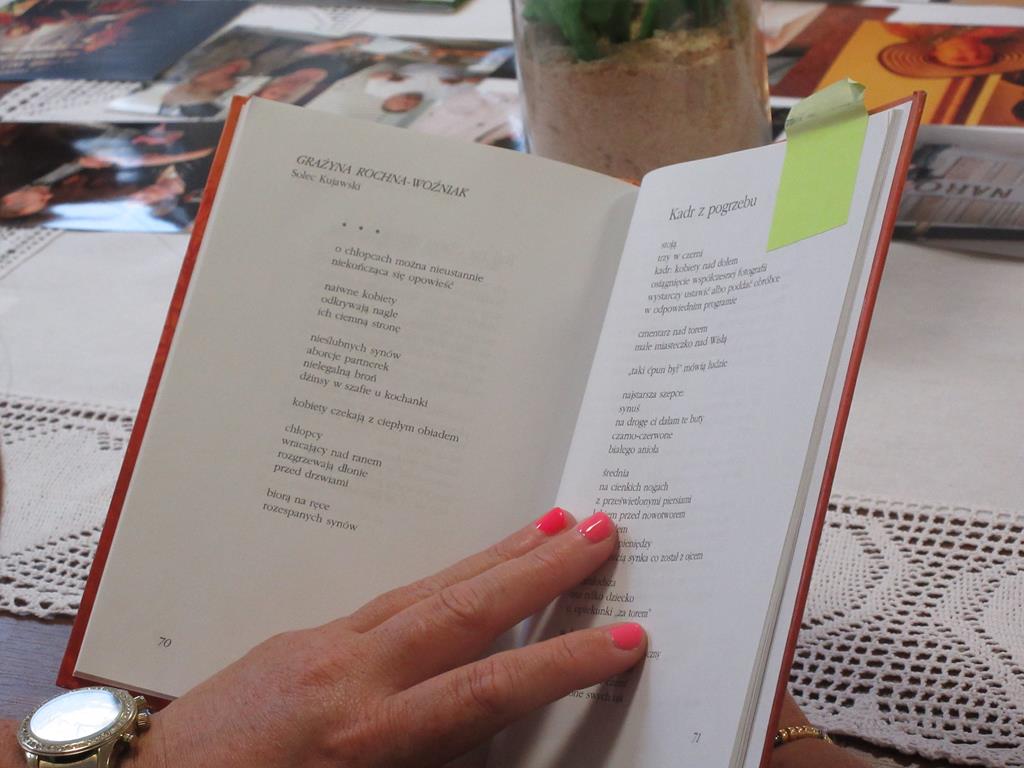 GRAŻYNA ROCHNA-WOŹNIAK
Solec Kujawski
* * *
o chłopcach można nieustannie
niekończąca się opowieść
naiwne kobiety
odkrywają nagle
ich ciemną stronę
nieślubnych synów
aborcje partnerek
nielegalną broń
dżinsy w szafie u kochanki
kobiety czekają z ciepłym obiadem
chłopcy
wracający nad ranem
rozgrzewają dłonie
przed drzwiami
biorą na ręce
rozespanych synów
70
Kadr z pogrzebu
stoją
trzy w czerni
kadr: kobiety nad dołem
osiągnięcie współczesnej fotografii
wystarczy ustawić albo poddać obróbce
w odpowiednim programie
cmentarz nad torem
małe miasteczko nad Wisłą
„taki ćpun był" mówią ludzie
najstarsza szepce:
synuś
na drogę ci dałam te buty
czarno-czerwone
białego anioła
średnia
na cienkich nogach
z prześwietlonymi piersiami
przed nowotworem
pieniędzy
synka co został z ojcem
tylko dziecko
opiekunki „za torem"
swych
71
NARO